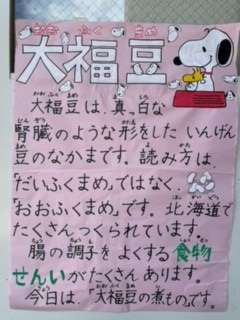 おお ふく まめ
大福豆
大福豆は、真っ白な
腎臓のような形をした いんげん
豆のなかまです。読み方は、
「だいふくまめ」ではなく、
「おおふくまめ」です。北海道で
たくさんつくられています。
腸の調子をよくする食物
せんいがたくさんあります。
今日は、「大福豆の煮もの」です。